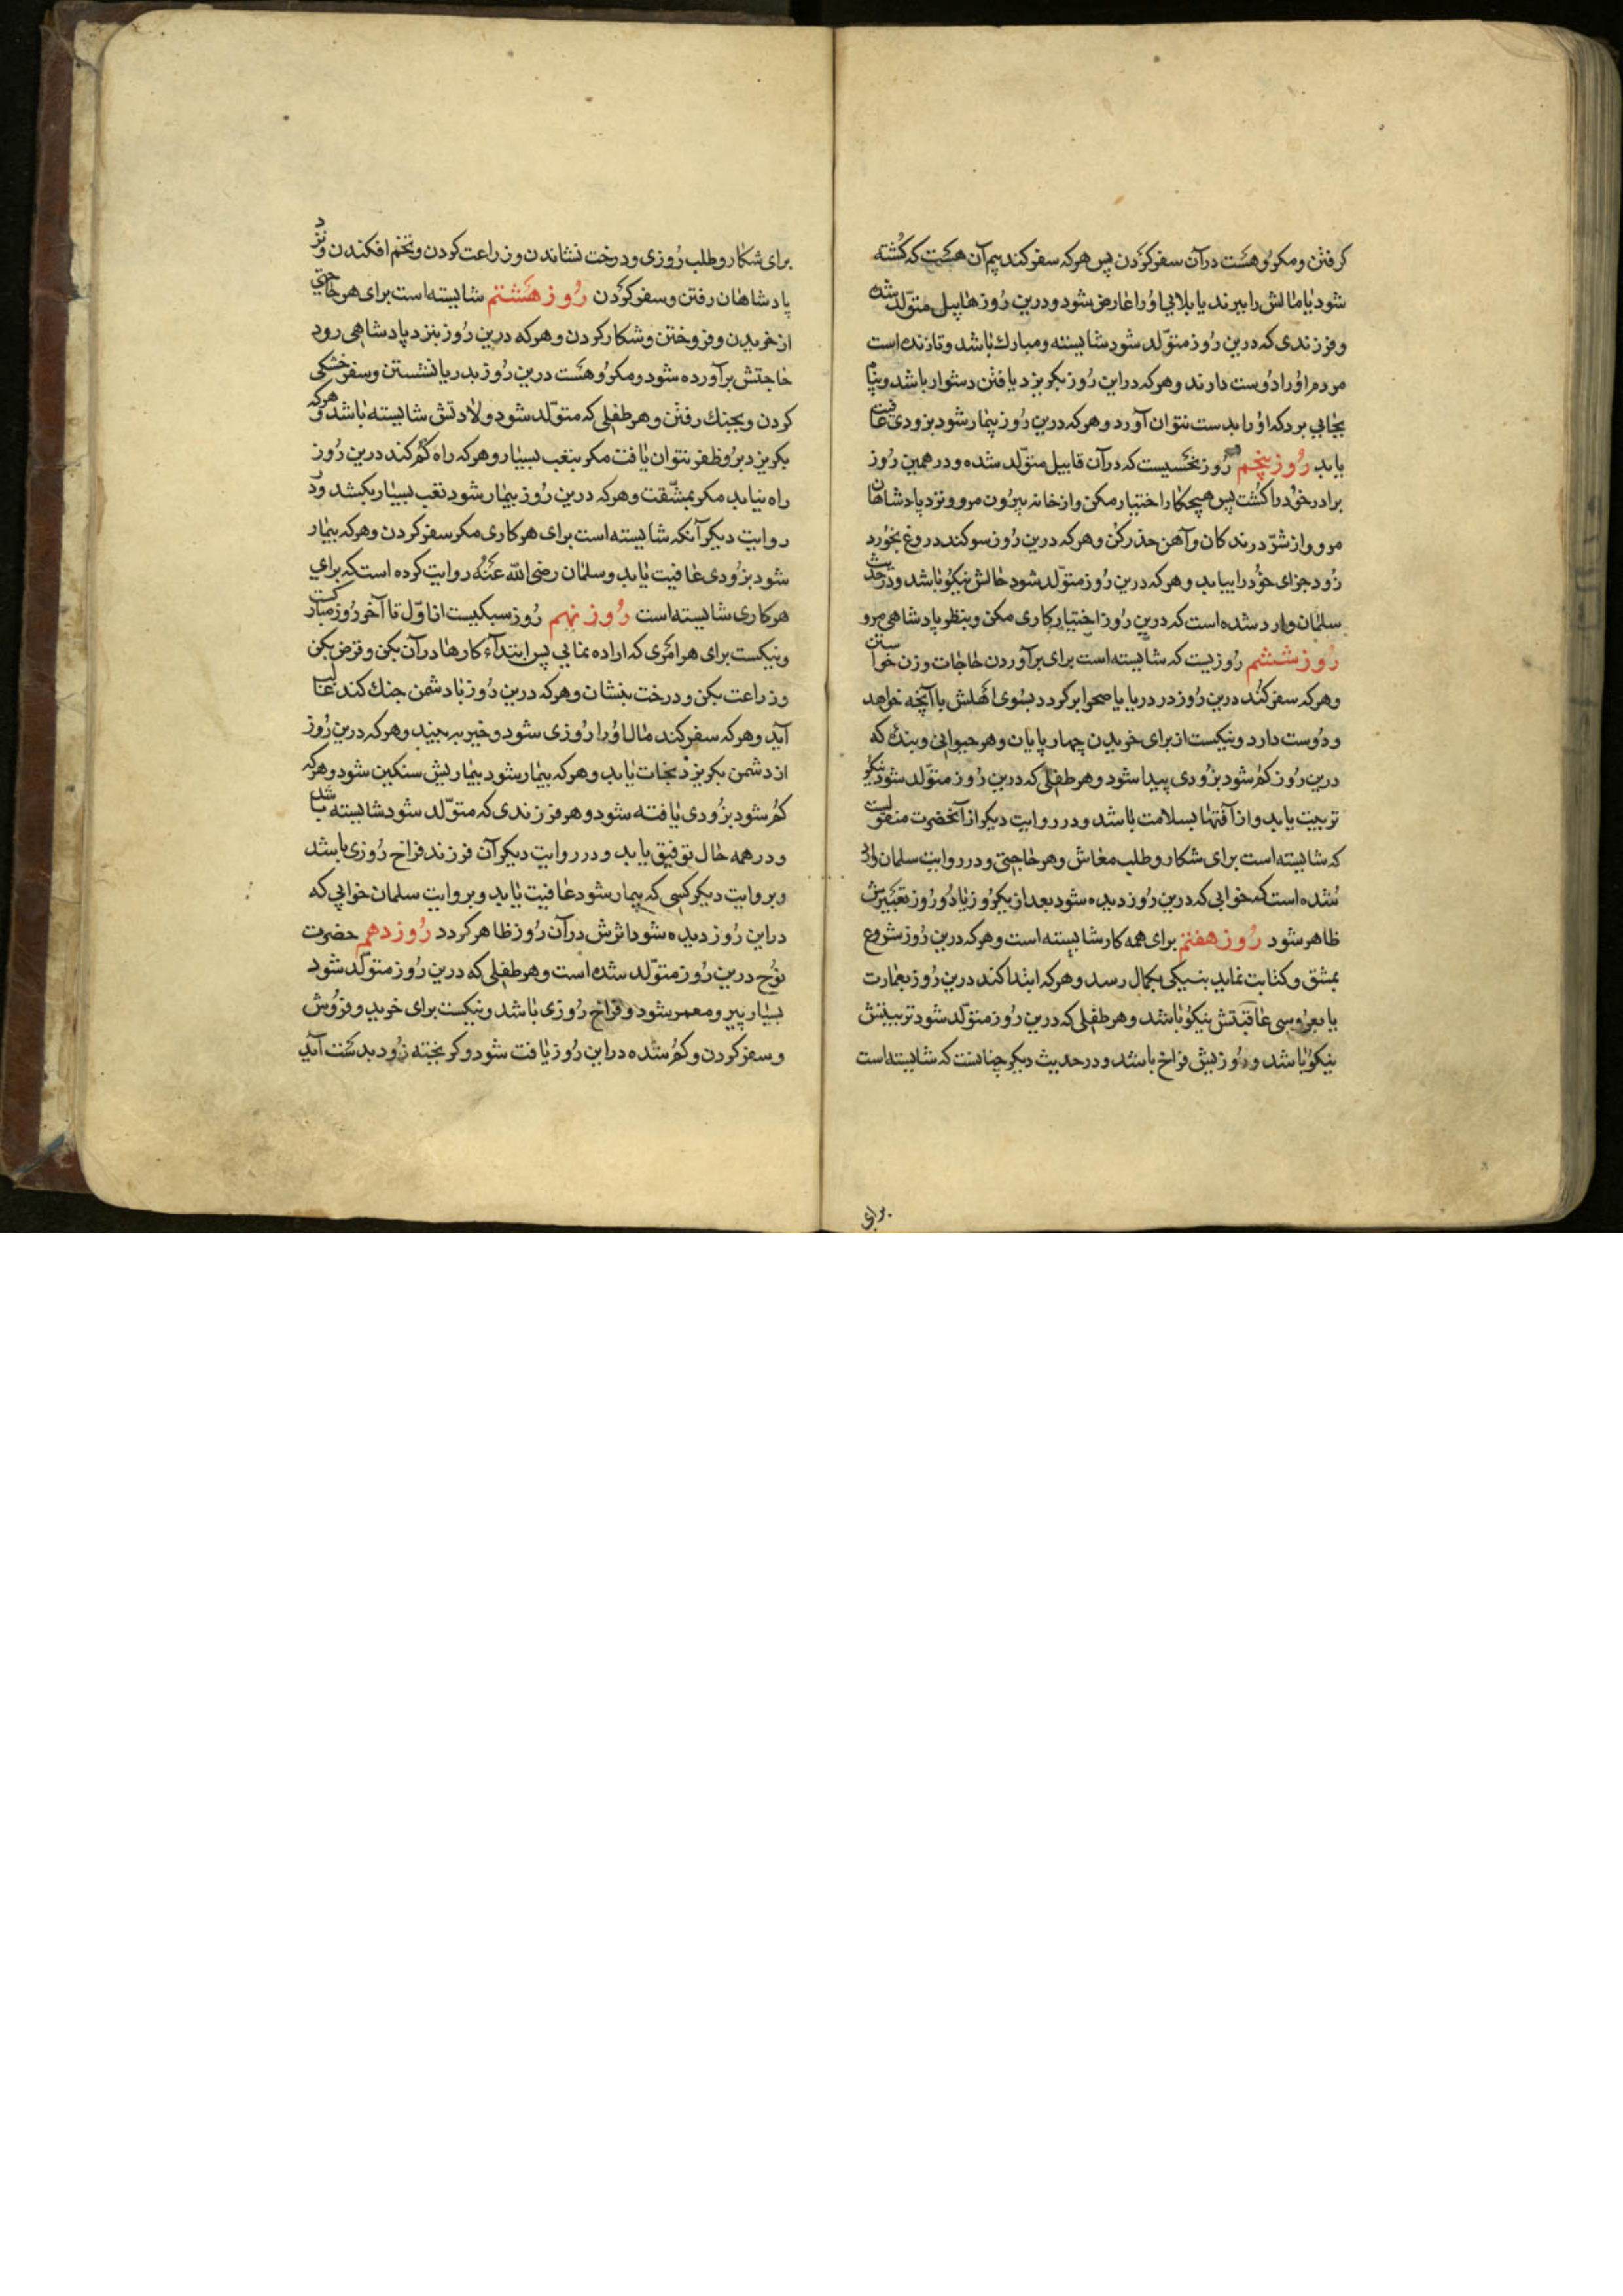 كرفتن و مكروهست درآن سفر كردن پس هركه سفر كند بيم آن هست كه كشته
شود يا مالش را ببرند يا بلايى اورا عارض شود و درين روز هابيل متولد شده
و فرزندى كه درين روز متولد شود شايسته و مبارك باشد و تا زنده است
مردم اورا دوست دارند و هركه دراين روز بكريزد يافتن دشوار باشد و پناه
بجايى برد كه اورا بدست نتوان آورد و هركه درين روز بيمار شود بزودى عافيت
يابد روز پنجم روز نحسيست كه درآن قابيل متولد شده و در همين روز
برادر خود را كشت پس هيچ كار اختيار مكن و از خانه بيرون مرو و نزد پادشاهان
مرو و از شر درندكان و آهن حذر كن و هركه درين روز سوكند دروغ بخورد
زود جزاى خود را بيابد و هركه درين روز متولد شود حالش نيكو باشد و در حديث
سلمان وارد شده است كه درين روز اختيار كارى مكن و بنظر پادشاهى مرو
روز ششم روزيست كه شايسته است براى برآوردن حاجات و زن خواستن
و هركه سفر كند درين روز در دريا يا صحرا بر كردد بسوى اهلش با آنچه خواهد
و دوست دارد و نيكست از براى خريدن چهار پايان و هر حيوانى و بنده كه
درين روز كم شود بزودى پيدا شود و هر طفلى كه درين روز متولد شود نيكو
تربيت يابد و از آفتها بسلامت باشد و در روايت ديكر از آنحضرت منقولست
كه شايسته است براى شكار و طلب معاش و هر حاجتى و در روايت سلمان وارد
شده است كه خوابى كه درين روز ديده شود بعد از يكروز يا دو روز تعبيرش
ظاهر شود روز هفتم براى همه كار شايسته است و هركه درين روز شروع
بمشق و كتابت نمايد بنيكى بكمال رسد و هركه ابتدا كند درين روز بعمارت
يا بعروسى عاقبتش نيكو باشد و هر طفلى كه درين روز متولد شود تربيتش
نيكو باشد و روزيش فراخ باشد و در حديث ديكر چنانست كه شايسته است
براى
براى شكار و طلب روزى و درخت نشاندن و زراعت كردن و تخم افكندن و نزد
پادشاهان رفتن و سفر كردن روز هشتم شايسته است براى هر حاجتى
از خريدن و فروختن و شكار كردن و هركه درين روز بنزد پادشاهى رود
حاجتش برآورده شود و مكروهست درين روز بدريا نشستن و سفر خشكى
كردن و بجنك رفتن و هر طفلى كه متولد شود ولادتش شايسته باشد و هركه
بكريزد برو ظفر نتوان يافت مكر بتعب بسيار و هركه راه كم كند درين روز
راه نيابد مكر بمشقت و هركه درين روز بيمار شود تعب بسيار بكشد و در
روايت ديكر آنكه شايسته است براى هر كارى مكر سفر كردن و هركه بيمار
شود بزودى عافيت يابد و سلمان رضى الله عنه روايت كرده است كه براى
هر كارى شايسته است روز نهم روز سبكيست از اول تا آخر روز مباركست
و نيكست براى هر امرى كه اراده نمايى پس ابتداء كارها درآن بكن و قرض بكن
و زراعت بكن و درخت بنشان و هركه درين روز با دشمن جنك كند غالب
آيد و هركه سفر كند مال اورا روزى شود و خير به بيند و هركه درين روز
از دشمن بكريزد نجات يابد و هركه بيمار شود بيماريش سنكين شود و هركه
كم شود بزودى يافته شود و هر فرزندى كه متولد شود شايسته باشد
و در همه حال توفيق يابد و در روايت ديكر آن فرزند فراخ روزى باشد
و بروايت ديكر كسى كه بيمار شود عافيت يابد و بروايت سلمان خوابى كه
دراين روز ديده شود اثرش درآن روز ظاهر كردد روز دهم حضرت
نوح درين روز متولد شده است و هر طفلى كه درين روز متولد شود
بسيار پير و معمر شود و فراخ روزى باشد و نيكست براى خريد و فروش
و سفر كردن و كم شده دراين روز يافت شود و كريخته زود بدست آيد